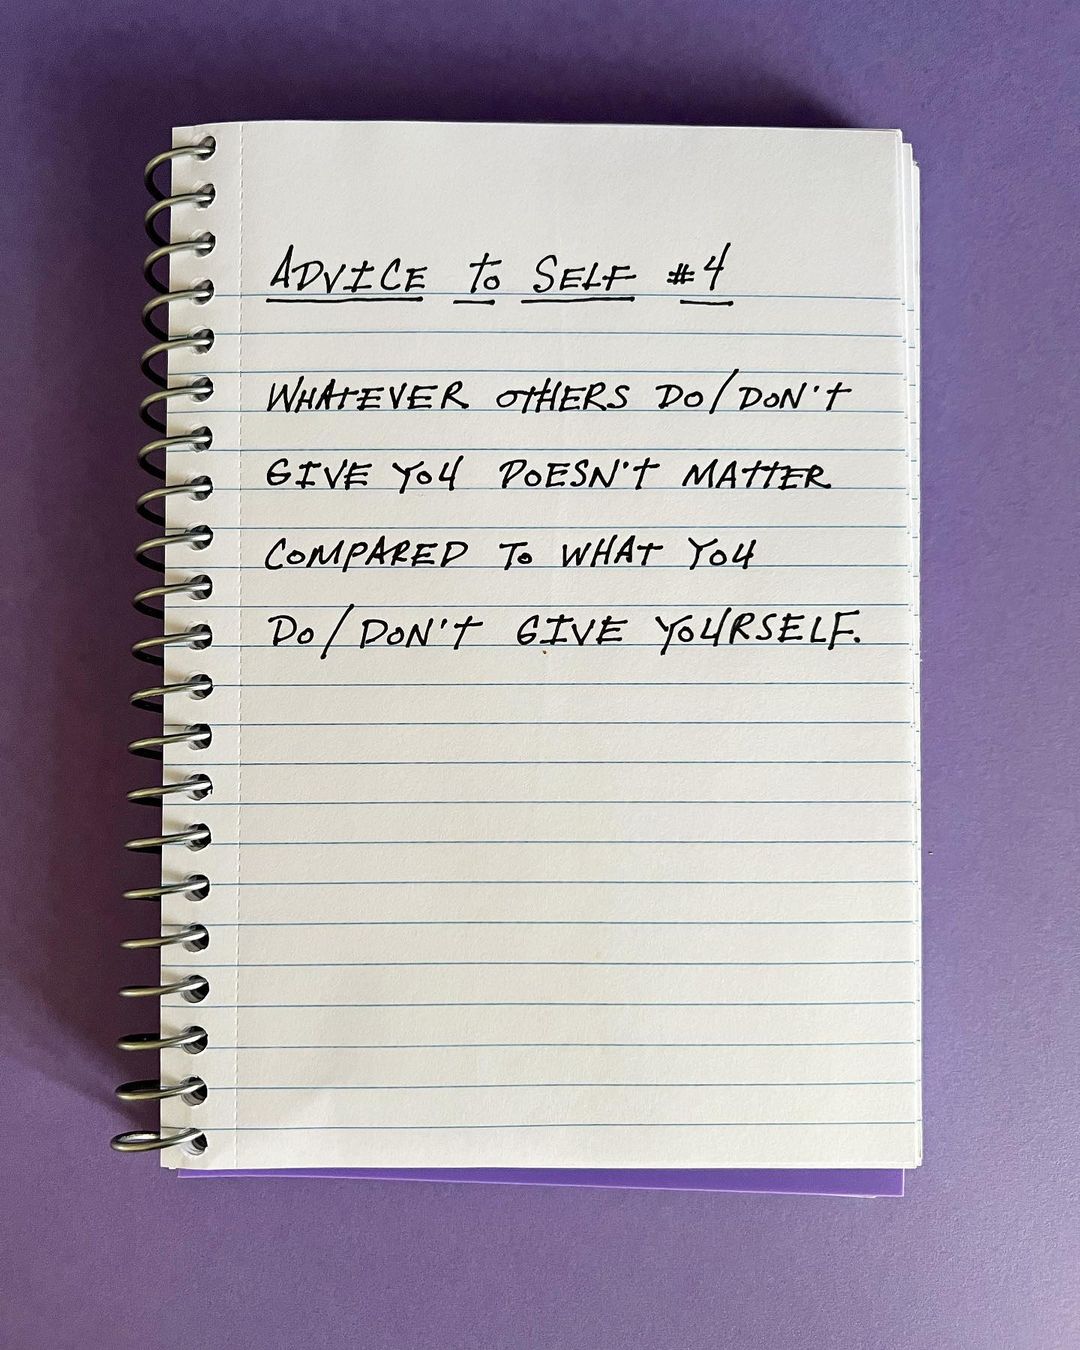 ADVICE To SELF #4
WHATEVER OTHERS DO/DON'T
GIVE YOU DOESN'T MATTER
COMPARED To WHAT YOU
DO/DON'T GIVE YOURSELF.